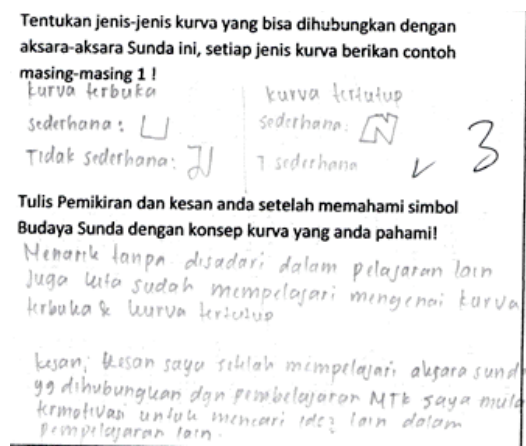 Tentukan jenis-jenis kurva yang bisa dihubungkan dengan
aksara-aksara Sunda ini, setiap jenis kurva berikan contoh
masing-masing 1 !
kurva terbuka
kurva tertutup
sederhana :
sederhana:
Tidak sederhana:
T sederhana
3
Tulis Pemikiran dan kesan anda setelah memahami simbol
Budaya Sunda dengan konsep kurva yang anda pahami!
Menarik tanpa disadari dalam pelajaran lain
Juga kita sudah mempelajari mengenai kurva
terbuka & kurva tertutup
kesan; kesan saya setelah mempelajari aksara sund
yg dihubungkan dgn pembelajaran MTK saya mula
termotivasi untuk mencari ide2 lain dalam
pempelajaran lain.